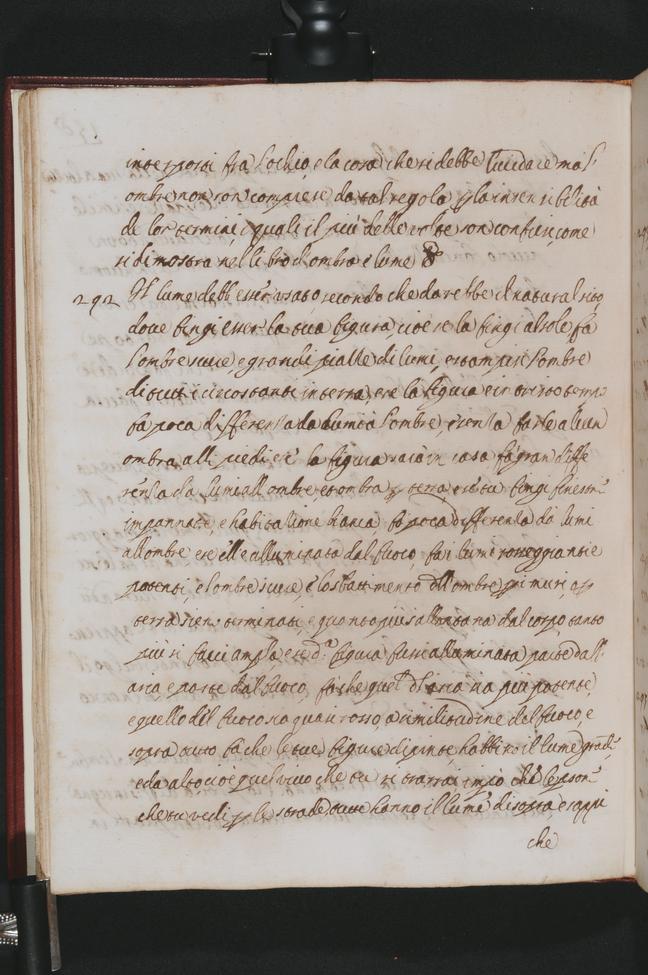 interposti fra l'ochio, e la cosa che si debbe lucidare ma l'
ombre non son compiese da tal regola p la insensibilità
de lor termini, i quali il più delle volte son confusi, come
si dimostra nell libro d'ombra e lume
292 Il lume debb'esser usato, secondo che darebbe il natural sito
dove fingi esser la tua figura, cioè se la fingi al sole fa
l'ombre scure, e grandi piazze di lumi, e stampisi l'ombre
di tutti i circostanti in terra, e se la figura è in tristo tempo
fa poca differenza da lumi a l'ombre, e senza farle alcun
ombra alli piedi e se la figura sarà in casa, fa gran diffe
renza da lumi all'ombre et ombra p terra e se tu fingi finestre
impannate, e habitatione bianca fa poca differenza da lumi
all'ombre e se ell'è alluminata dal fuoco, fa i lumi rosseggianti e
potenti, e l'ombre scure e lo sbattimento dell'ombre pi muri, o p
terra sien terminati, e quanto più s'allontana dal corpo tanto
più si facci ampla e se d.ª figura fussi alluminata parte dall'
aria, e parte dal fuoco, fa che quel d'aria sia più potente,
e quello del fuoco sia quasi rosso, a similitudine del fuoco, e
sopra tutto fa che le tue figure dipinte habbino il lume grande
e da alto cioè quel vivo che tu si trarrai impò ché le persone
che tu vedi p le strade, tutte hanno il lume di sopra, e sappi
che